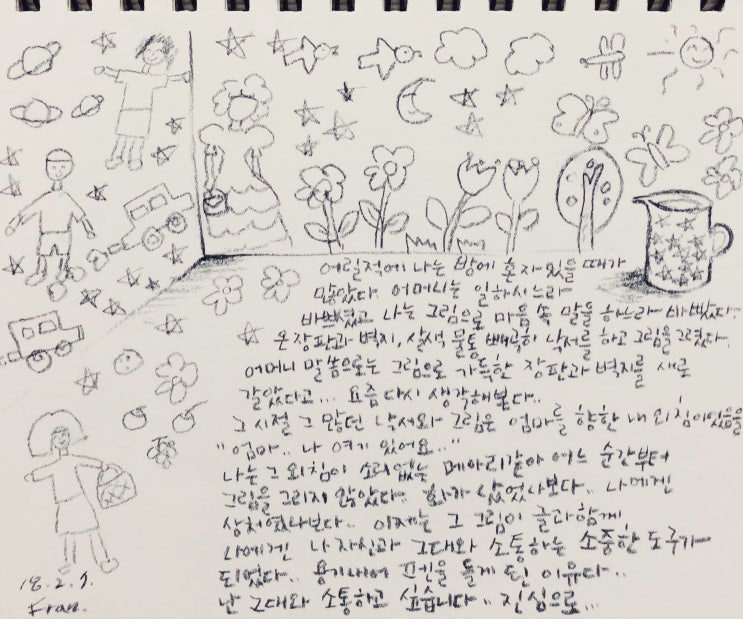 어릴적에 나는 방에 혼자 있을 때가
많았다. 어머니는 일하시느라
바쁘셨고 나는 그림으로 마음 속 말을 하느라 바빴다.
온 장판과 벽지, 살색 물통 빼곡히 낙서를 하고 그림을 그렸다.
어머니 말씀으로는 그림으로 가득한 장판과 벽지를 새로
갈았다고... 요즘 다시 생각해본다..
그 시절 그 많던 낙서와 그림은 엄마를 향한 내 외침이었음을
"엄마.. 나 여기 있어요.."
나는 그 외침이 소리없는 메아리같아 어느 순간부터
그림을 그리지 않았다. 화가 났었나보다.. 나에겐
상처였나보다.. 이제는 그 그림이 글과 함께
나에겐 나 자신과 그대와 소통하는 소중한 도구가
되었다.. 용기내어 프펜을 들게 된 이유다..
난 그대와 소통하고 싶습니다.. 진심으로...
18.2.9.
Fran.